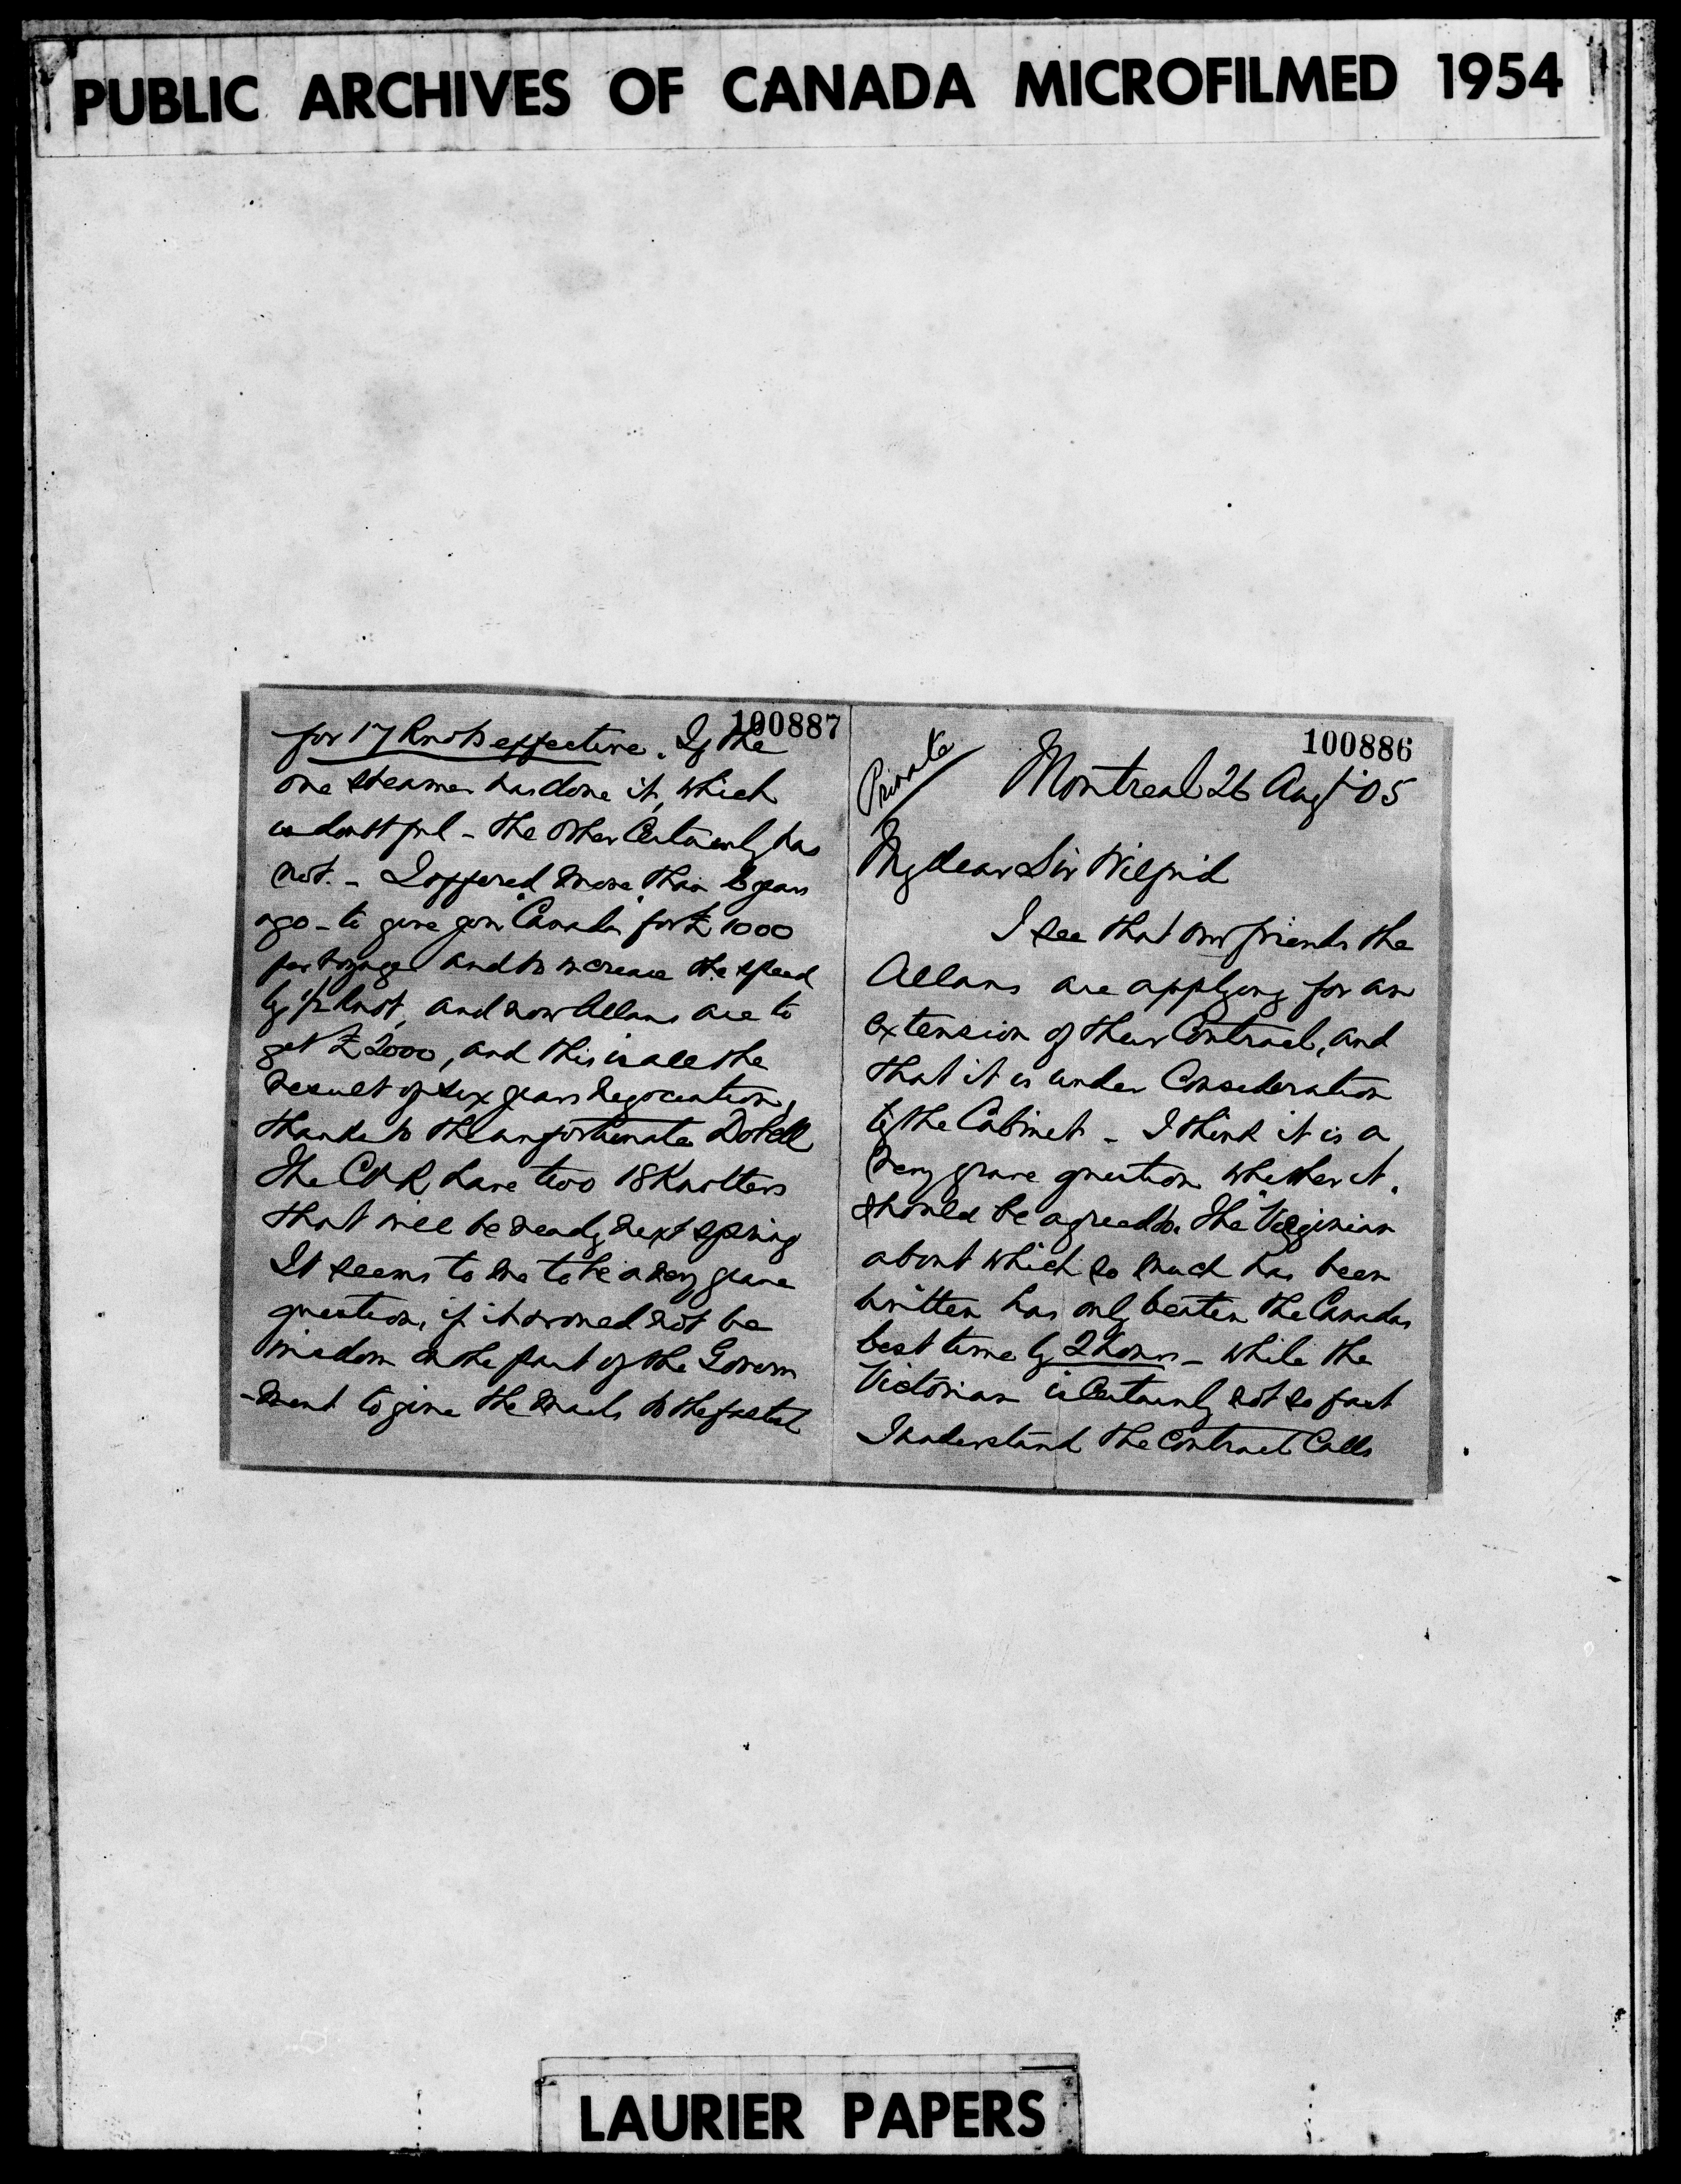 PUBLIC ARCHIVES OF CANADA MICROFILMED 1954
100886
Private
Montreal 26 Augt '05
My dear Sir Wilfrid
I see that our friends the
Allans are applying for an
extension of their Contract, and
that it is under Consideration
by the Cabinet - I think it is a
very grave question whether it
should be agreed to. The "Virginian
about which so much has been
written has only beaten the Canadas
best time by 2 hours - while the
Victorian is Certainly not so fast
I understand the Contract Calls
100887
for 17 Knots effective. If the
one steamer has done it, which
is doubtful - the other Certainly has
not. - I offered more than 6 years
ago - to give you "Canada" for £1000
per voyage and to increase the speed
by 1/2 knot, and now Allans are to
get £2000, and this is all the
result of six years negociation,
thanks to the unfortunate Dobell
The CPR have two 18 Knotters
that will be ready next spring
It seems to me to be a very grave
question, if it would not be
wisdom on the part of the Govern
-ment to give the mails to the fastest
LAURIER PAPERS